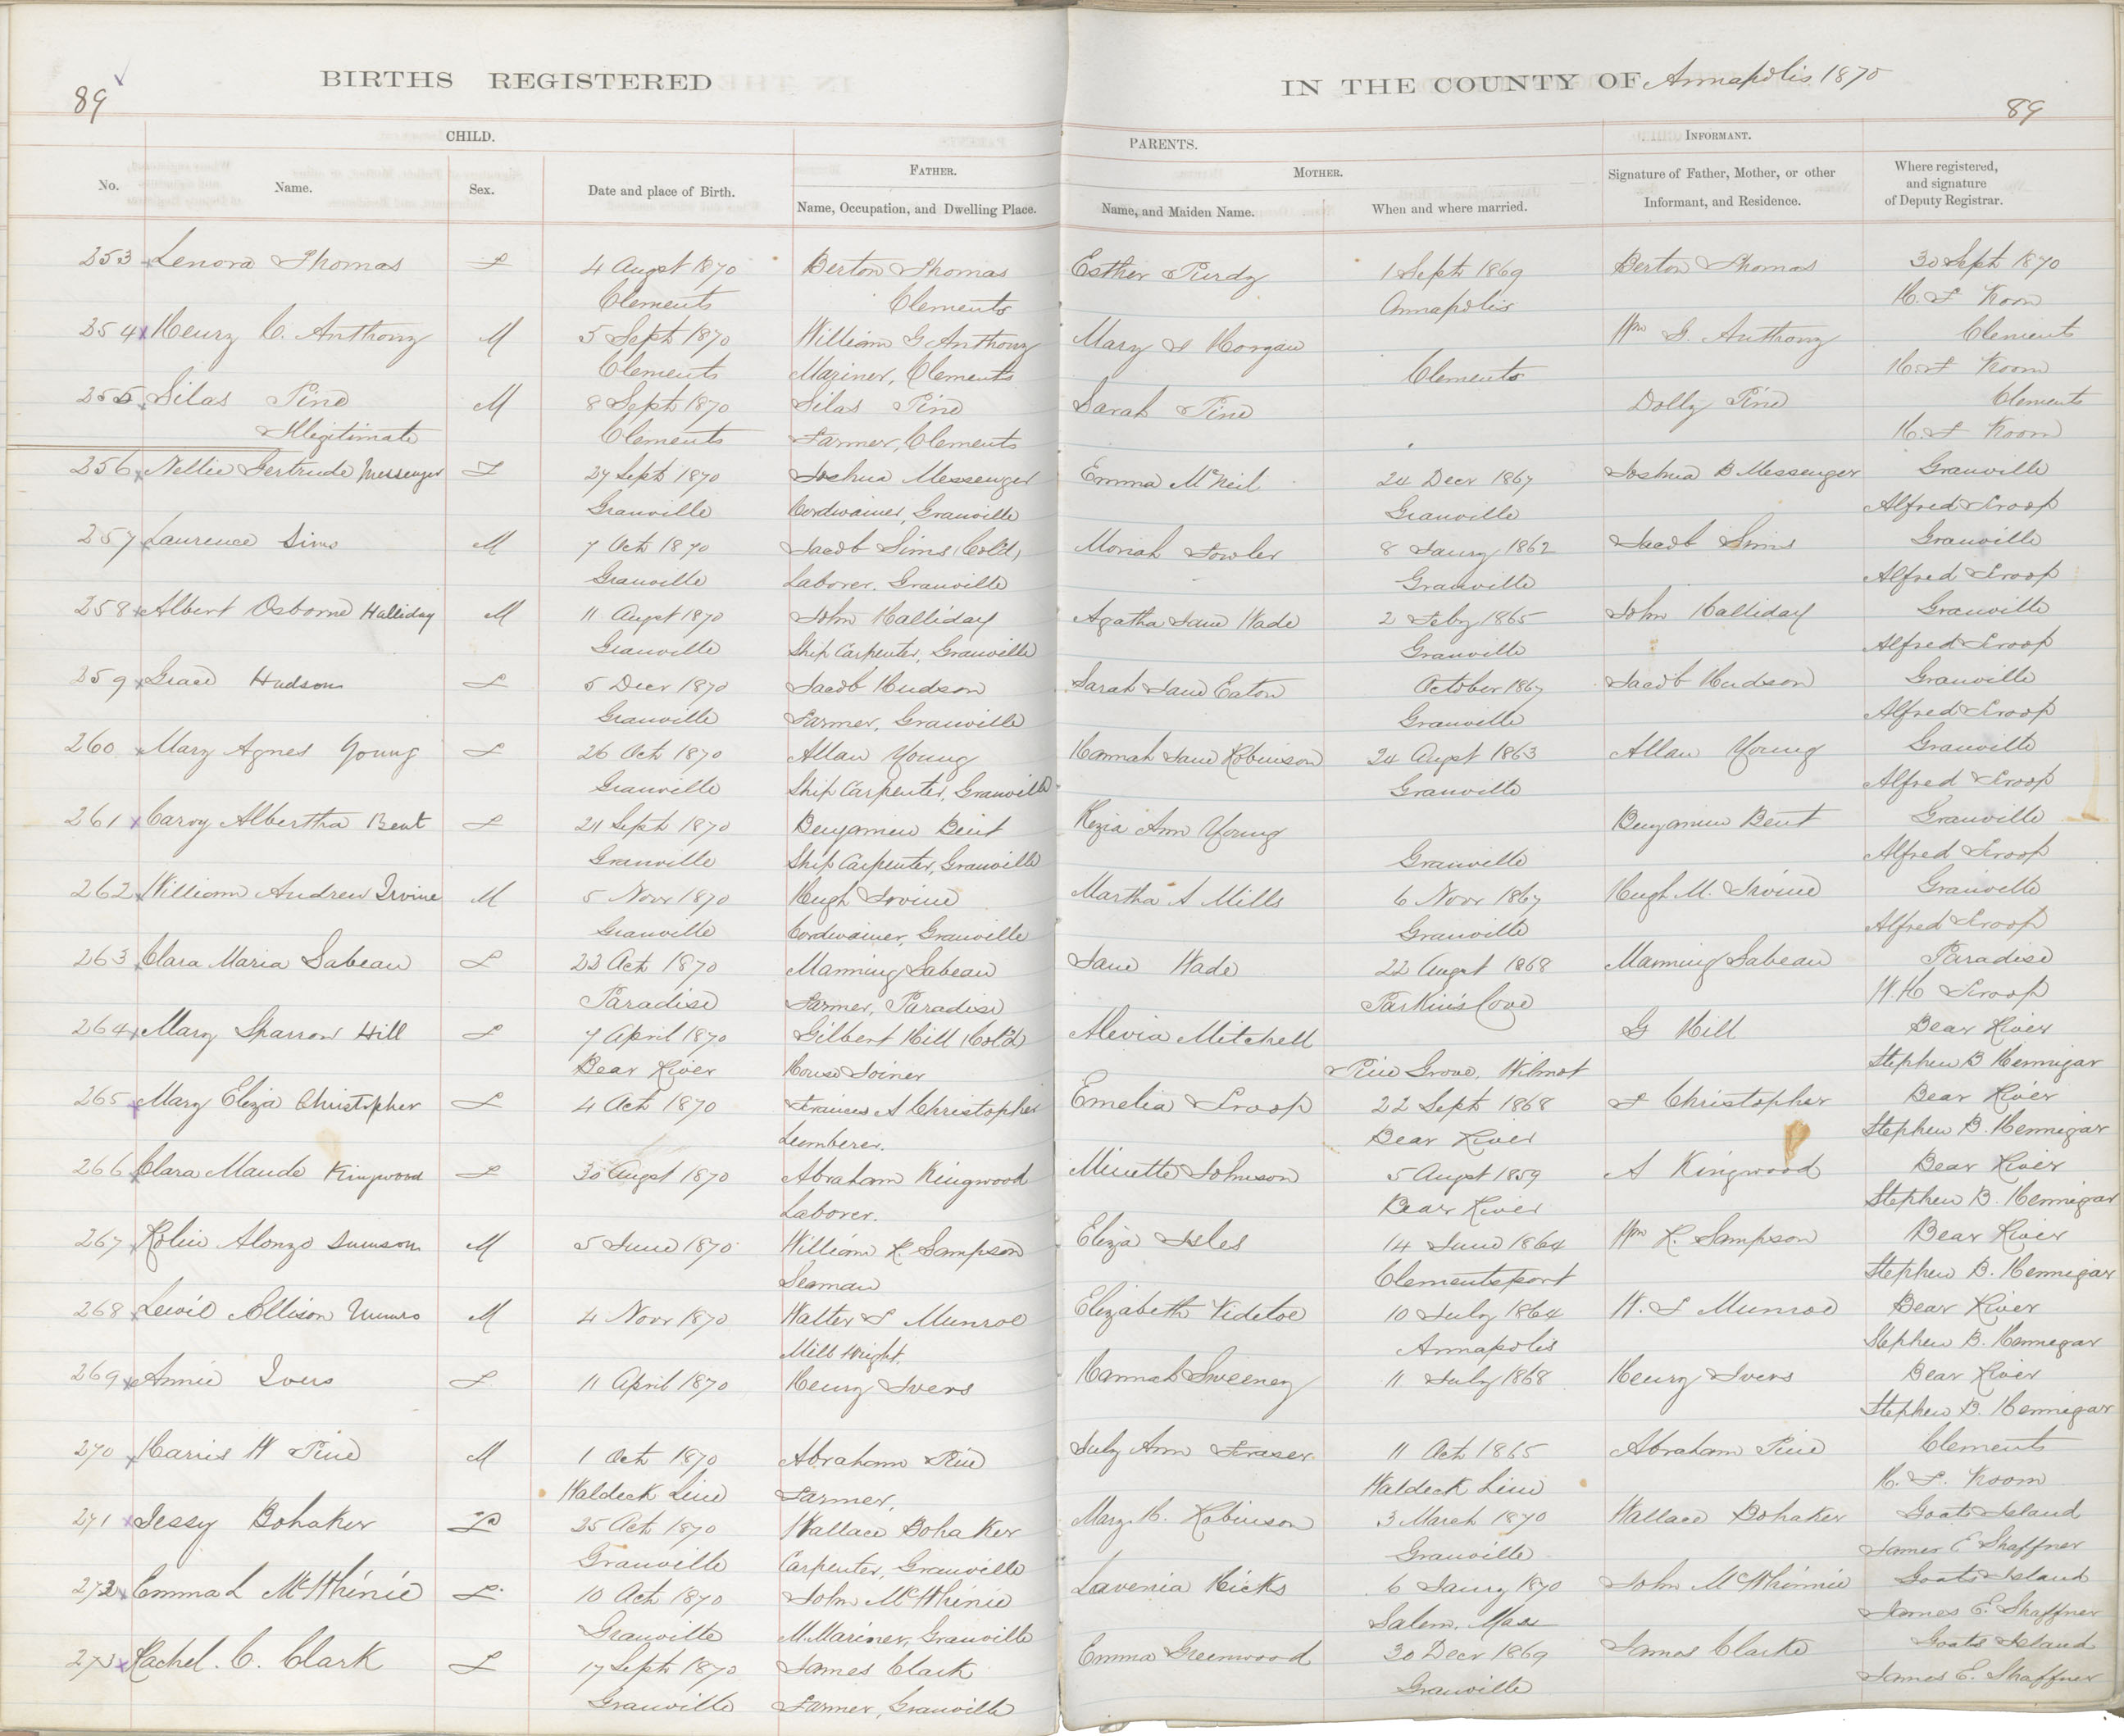 89
BIRTHS REGISTERED
IN THE COUNTY OF Annapolis 1870
89
CHILD.
PARENTS.
INFORMANT.
No.
Name.
Sex.
Date and place of Birth.
FATHER.
Name, Occupation, and Dwelling Place.
MOTHER.
Name, and Maiden Name.
When and where married.
Signature of Father, Mother, or other
Informant, and Residence.
Where registered,
and signature
of Deputy Registrar.
253 Lenora Thomas F 4 Augst 1870 Berton Thomas Esther Purdy 1 Sept 1869 Berton Thomas 30 Sept 1870
Clements Clements Annapolis H. F Vroom
254 Henry C. Anthony M 5 Sept 1870 William G Anthony Mary J Morgan Wm G. Anthony Clements
Clements Mariner, Clements Clements H. F Vroom
255 Silas Pine M 8 Sept 1870 Silas Pine Sarah Pine Dolly Pine Clements
Illegitimate Clements Farmer, Clements H. F Vroom
256 Nellie Gertrude Messenger F 27 Sept 1870 Joshua Messenger Emma McNeil 24 Decr 1867 Joshua B Messenger Granville
Granville Cordwainer, Granville Granville Alfred Troop
257 Laurence Sims M 7 Oct 1870 Jacob Sims (Col'd) Moriah Fowler 8 Jany 1862 Jacob Sims Granville
Granville Laborer. Granville Granville Alfred Troop
258 Albert Osborne Halliday M 11 Augst 1870 John Halliday Agatha Jane Wade 2 Feby 1865 John Halliday Granville
Granville Ship Carpenter, Granville Granville Alfred Troop
259 Grace Hudson F 5 Decr 1870 Jacob Hudson Sarah Jane Eaton October 1867 Jacob Hudson Granville
Granville Farmer, Granville Granville Alfred Troop
260 Mary Agnes Young F 26 Oct 1870 Allan Young Hannah Jane Robinson 24 Augst 1863 Allan Young Granville
Granville Ship Carpenter, Granville Granville Alfred Troop
261 Carry Albertha Bent F 21 Sept 1870 Benjamin Bent Kezia Ann Young Benjamin Bent Granville
Granville Ship Carpenter, Granville Granville Alfred Troop
262 William Andrew Irvine M 5 Novr 1870 Hugh Irvine Martha A Mills 6 Novr 1867 Hugh M. Irvine Granville
Granville Cordwainer, Granville Granville Alfred Troop
263 Clara Maria Sabeau F 22 Oct 1870 Manning Sabeau Jane Wade 22 Augst 1868 Manning Sabeau Paradise
Paradise Farmer, Paradise Parkins Cove W. H Troop
264 Mary Sparrow Hill F 7 April 1870 Gilbert Hill (Col'd) Alevia Mitchell G Hill Bear River
Bear River House Joiner Pine Grove, Wilmot Stephen B Hennigar
265 Mary Eliza Christopher F 4 Oct 1870 Frances A Christopher Emelia Troop 22 Sept 1868 F Christopher Bear River
Lumberer. Bear River Stephen B. Hennigar
266 Clara Maude Kingwood F 30 Augst 1870 Abraham Kingwood Minette Johnson 5 Augst 1859 A Kingwood Bear River
Laborer. Bear River Stephen B. Hennigar
267 Rolin Alonzo M 5 June 1870 William R Sampson Eliza Isles 14 June 1864 Wm R. Sampson Bear River
Seaman Clementsport Stephen B. Hennigar
268 Ellison Munro M 4 Novr 1870 Walter S Munroe Elizabeth Videtoe 10 July 1864 W. S Munroe Bear River
Mill Wright. Annapolis Stephen B. Hennegar
269 Annie Ivers F 11 April 1870 Henry Ivers Hannah Sweeney 11 July 1868 Henry Ivers Bear River
Stephen B. Hennigar
270 Harris W Pine M 1 Oct 1870 Abraham Pine July Ann Fraser 11 Oct 1865 Abraham Pine Clements
Waldeck Line Farmer, Waldeck Line H. F. Vroom
271 Jessy Bohaker F 25 Oct 1870 Wallace Bohaker Mary H. Robinson 3 March 1870 Wallace Bohaker Goats Island
Granville Carpenter, Granville Granville James E Shaffner
272 Emma L McWhinie F 10 Oct 1870 John McWhinie Lavenia Hicks 6 Jany 1870 John McWhinnie Goats Island
Granville M. Mariner, Granville Salem, Mass James E. Shaffner
273 Rachel. C. Clark F 17 Sept 1870 James Clark Emma Greenwood 30 Decr 1869 James Clarke Goats Island
Granville Farmer, Granville Granville James E. Shaffner